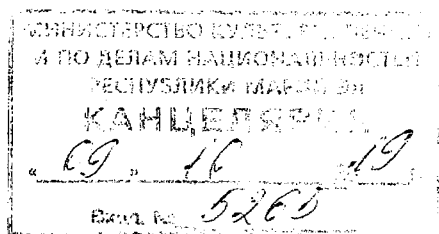 МИНИСТЕРСТВО КУЛЬТУРЫ, ПЕЧАТИ
И ПО ДЕЛАМ НАЦИОНАЛЬНОСТЕЙ
РЕСПУБЛИКИ МАРИЙ ЭЛ
КАНЦЕЛЯРИЯ
" 09 " 10 19
Вход. №